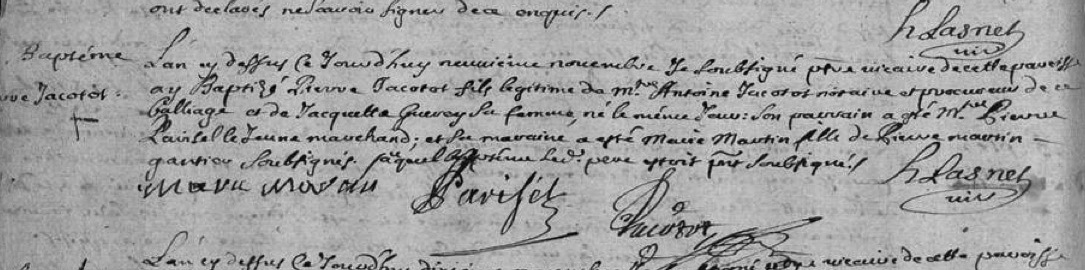 ont declarés ne scavoir signer de ce enquis./
h Lasnet
vic
Baptéme
Pierre Jacotot.
L'an cy dessus Ce Jourd'huy neuvieme novembre Je Soubsigné ptre vicaire de cette paroisse
ay Baptizé Pierre Jacotot fils legitime de mtre Antoine Jacotot notaire et procureur de ce
balliage et de Jacquette Guerey Sa femme né le méme Jour: son parrain a été Mtre Pierre
Pariset le Jeune marchand; et Sa maraine a esté Marie Martin fille de Pierre martin
Soubsignés. le d. pere estoit pnt Soubsignés
Pariset
Jacotot
h Lasnet
vic
L'an cy dessus Ce Jourd'huy vicaire de cette paroisse